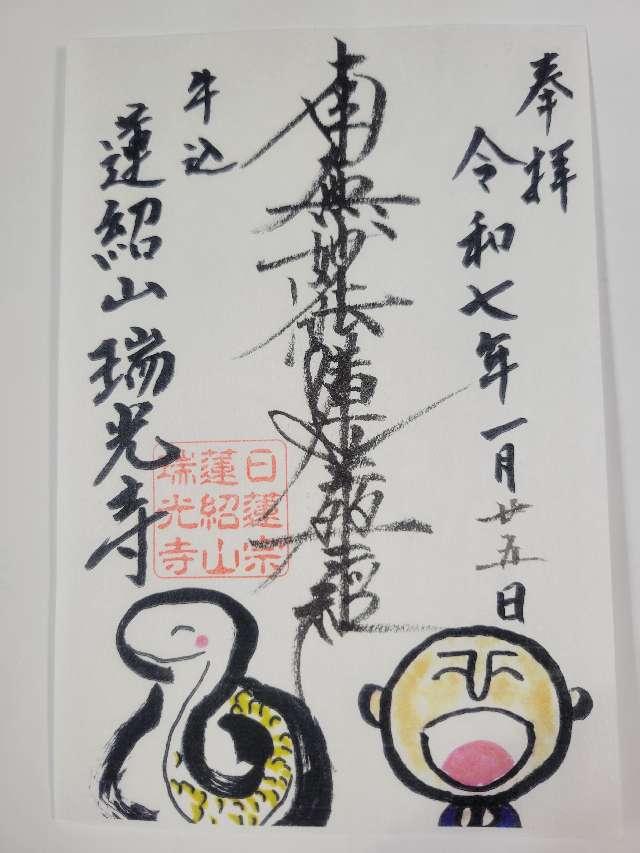 奉拝
令和七年一月廿五日
南無妙法蓮華経
牛込
蓮紹山瑞光寺
日蓮宗
蓮紹山
瑞光寺